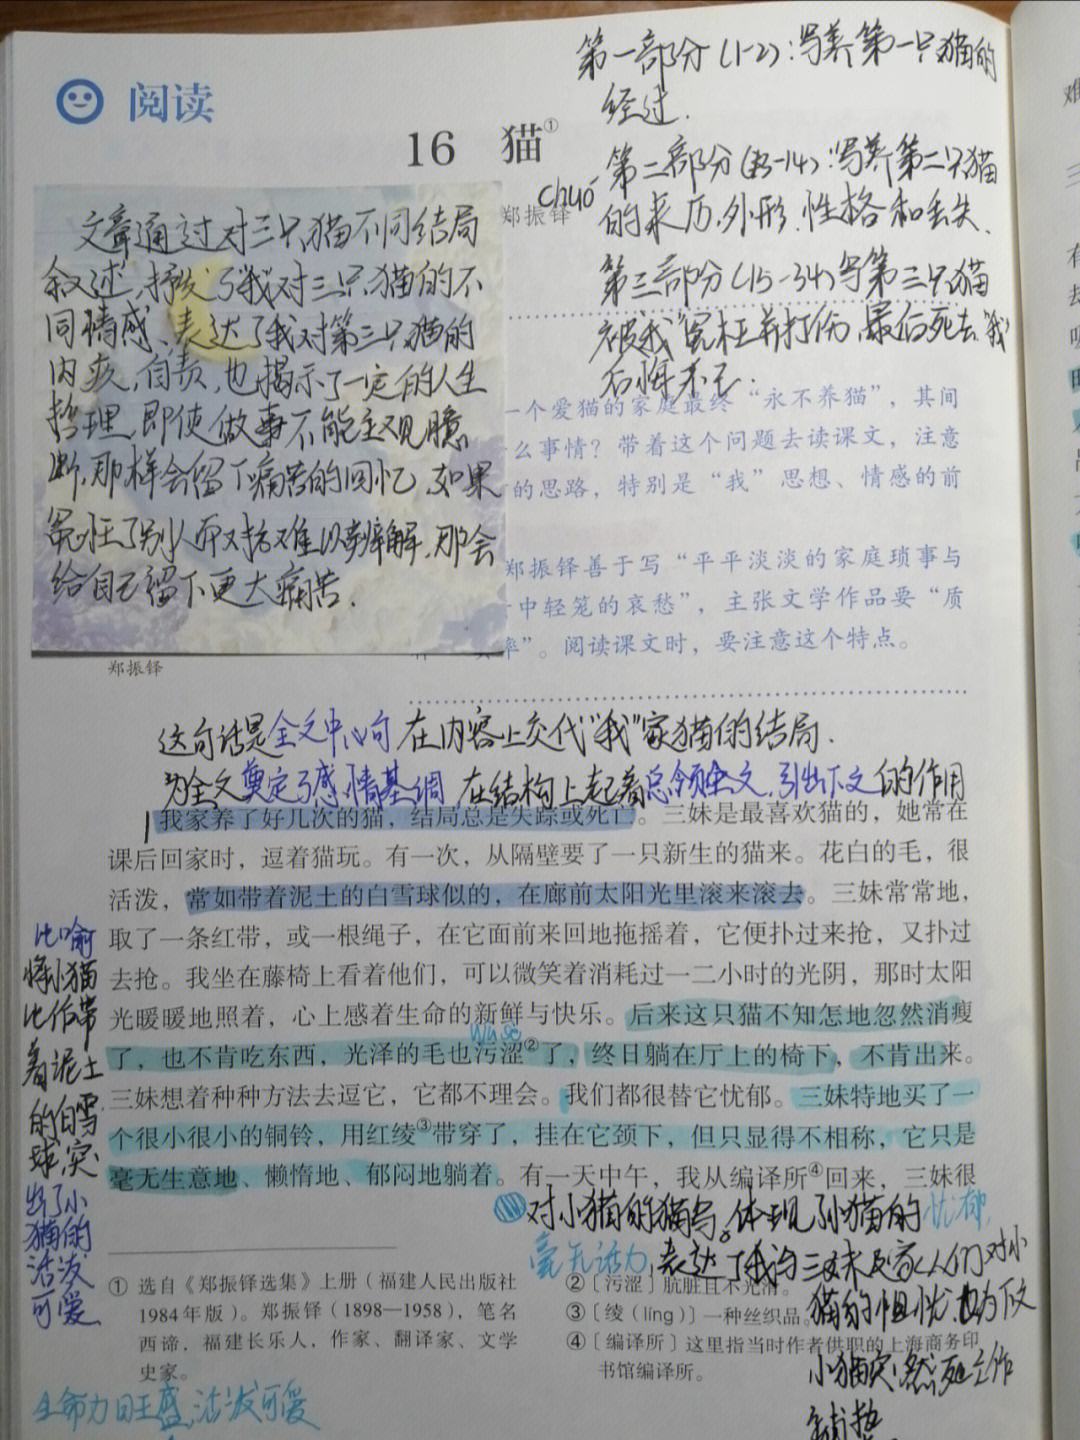 阅读
16 猫①
郑振铎
chuó
第一部分(1-2):写养第一只猫的
经过.
第二部分(3-14):写养第二只猫
的来历、外形、性格和丢失.
第三部分(15-34)写第三只猫
被"我"冤枉并打伤,最后死去"我"
后悔不已.
文章通过对三只猫不同结局
叙述,抒发了"我"对三只猫的不
同情感、表达了我对第三只猫的
内疚,自责,也揭示了一定的人生
哲理,即使做事不能主观臆
断,那样会留下痛苦的回忆,如果
冤枉了别人而对方难以辩解,那会
给自己留下更大痛苦.
一个爱猫的家庭最终“永不养猫”,其间
么事情?带着这个问题去读课文,注意
的思路,特别是“我”思想、情感的前
郑振铎善于写“平平淡淡的家庭琐事与
中轻笼的哀愁”,主张文学作品要“质
率”。阅读课文时,要注意这个特点。
郑振铎
这句话是全文中心句 在内容上交代"我"家猫的结局.
为全文奠定了感情基调 在结构上起着总领全文,引出下文的作用
我家养了好几次的猫,结局总是失踪或死亡。三妹是最喜欢猫的,她常在
课后回家时,逗着猫玩。有一次,从隔壁要了一只新生的猫来。花白的毛,很
活泼,常如带着泥土的白雪球似的,在廊前太阳光里滚来滚去。三妹常常地,
取了一条红带,或一根绳子,在它面前来回地拖摇着,它便扑过来抢,又扑过
去抢。我坐在藤椅上看着他们,可以微笑着消耗过一二小时的光阴,那时太阳
光暖暖地照着,心上感着生命的新鲜与快乐。后来这只猫不知怎地忽然消瘦
wū sè
了,也不肯吃东西,光泽的毛也污涩②了,终日躺在厅上的椅下,不肯出来。
三妹想着种种方法去逗它,它都不理会。我们都很替它忧郁。三妹特地买了一
个很小很小的铜铃,用红绫③带穿了,挂在它颈下,但只显得不相称,它只是
毫无生意地、懒惰地、郁闷地躺着。有一天中午,我从编译所④回来,三妹很
比喻
将小猫
比作带
着泥土
的白雪
球,突
出了小
猫的
活泼
可爱.
对小猫的描写。体现了小猫的忧郁,
毫无活力,表达了我与三妹及家人们对小
猫的担忧.也为下文
小猫突然死亡作
铺垫
① 选自《郑振铎选集》上册(福建人民出版社
1984年版)。郑振铎(1898—1958),笔名
西谛,福建长乐人,作家、翻译家、文学
史家。
②〔污涩〕肮脏且不光滑。
③〔绫(líng)〕一种丝织品。
④〔编译所〕这里指当时作者供职的上海商务印
书馆编译所。
生命力旺盛,活泼可爱